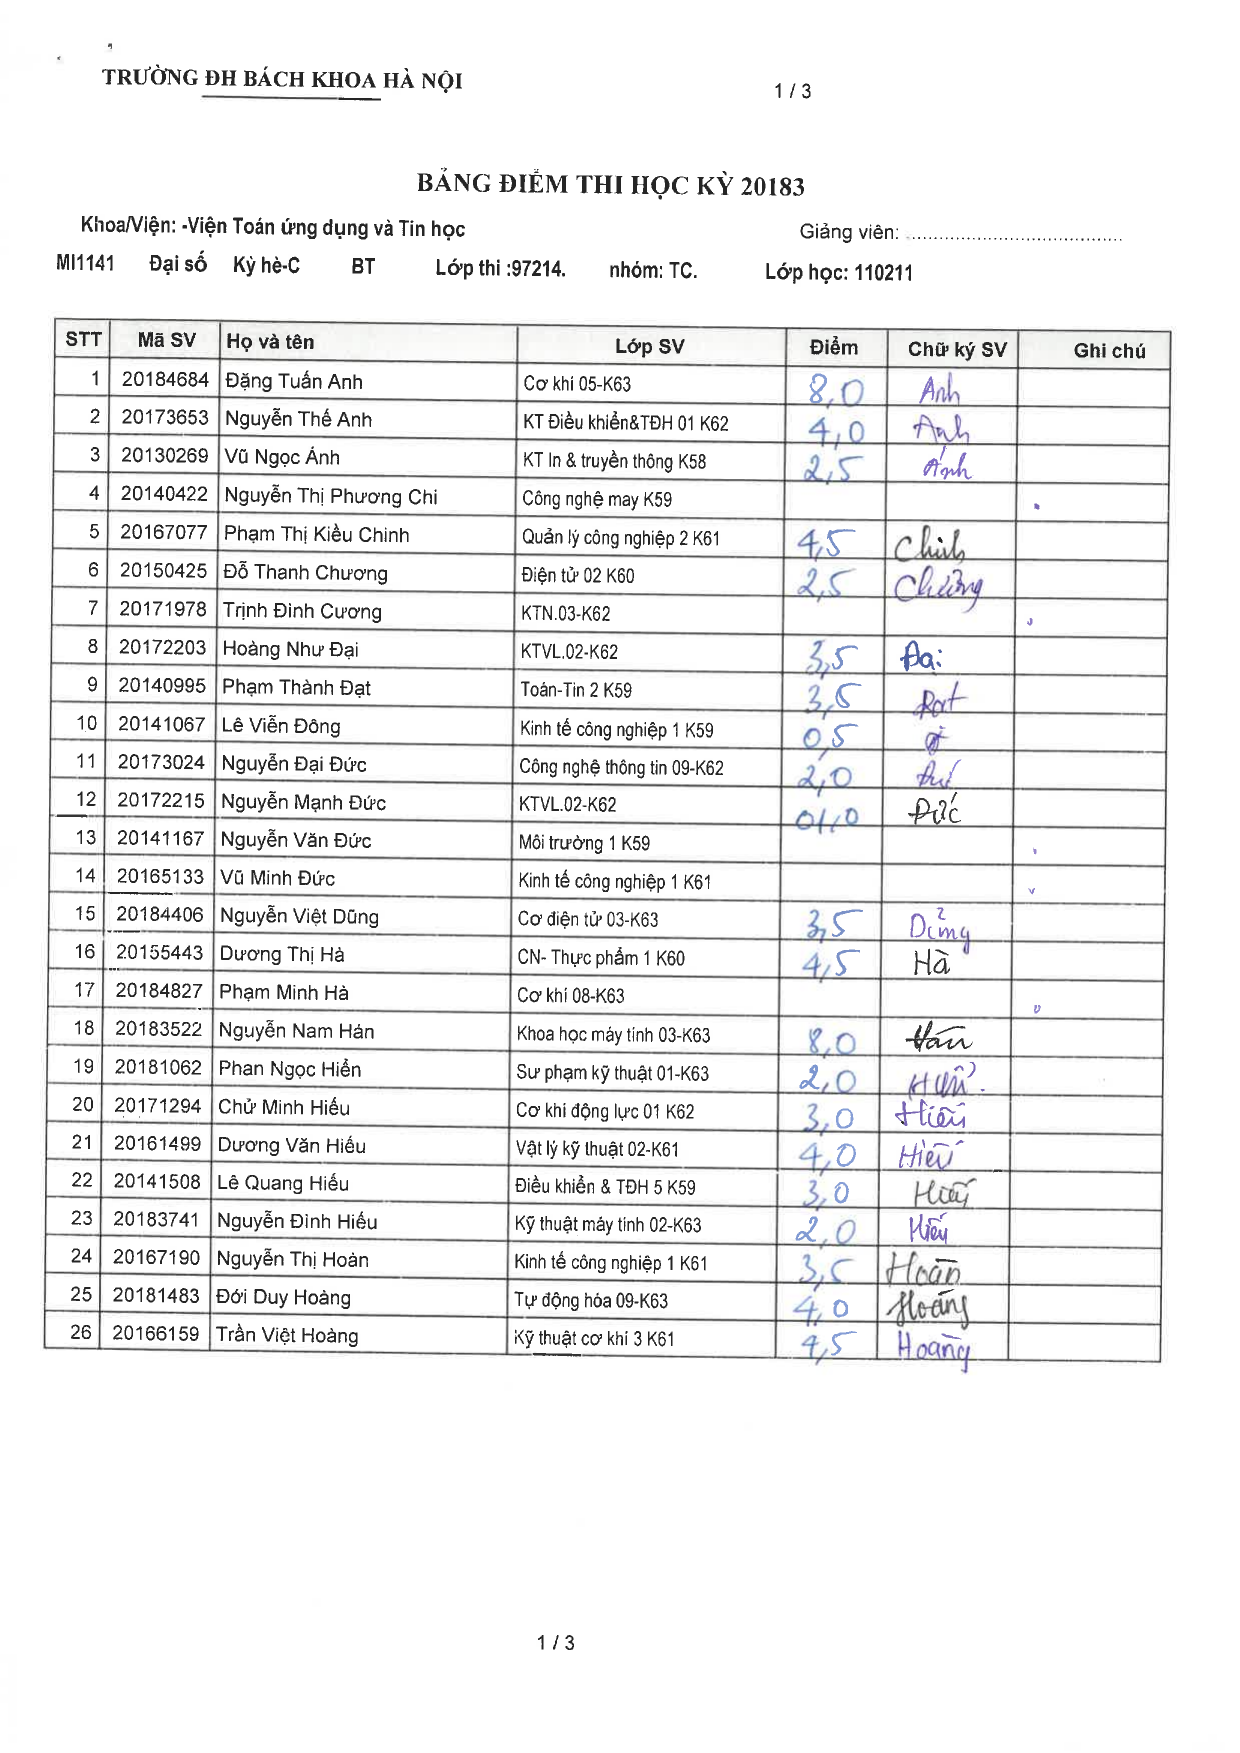 TRƯỜNG ĐH BÁCH KHOA HÀ NỘI
1 / 3
BẢNG ĐIỂM THI HỌC KỲ 20183
Khoa/Viện: -Viện Toán ứng dụng và Tin học Giảng viên: ........................................
MI1141 Đại số Kỳ hè-C BT Lớp thi :97214. nhóm: TC. Lớp học: 110211
STT Mã SV Họ và tên Lớp SV Điểm Chữ ký SV Ghi chú
1 20184684 Đặng Tuấn Anh Cơ khí 05-K63 8,0 Anh
2 20173653 Nguyễn Thế Anh KT Điều khiển&TĐH 01 K62 4,0 Anh
3 20130269 Vũ Ngọc Ánh KT In & truyền thông K58 2,5 Ánh
4 20140422 Nguyễn Thị Phương Chi Công nghệ may K59
5 20167077 Phạm Thị Kiều Chinh Quản lý công nghiệp 2 K61 4,5 Chinh
6 20150425 Đỗ Thanh Chương Điện tử 02 K60 2,5 Chương
7 20171978 Trịnh Đình Cương KTN.03-K62
8 20172203 Hoàng Như Đại KTVL.02-K62 3,5 Đại
9 20140995 Phạm Thành Đạt Toán-Tin 2 K59 3,5 Đạt
10 20141067 Lê Viễn Đông Kinh tế công nghiệp 1 K59 0,5
11 20173024 Nguyễn Đại Đức Công nghệ thông tin 09-K62 2,0
12 20172215 Nguyễn Mạnh Đức KTVL.02-K62 01,0 Đức
13 20141167 Nguyễn Văn Đức Môi trường 1 K59
14 20165133 Vũ Minh Đức Kinh tế công nghiệp 1 K61
15 20184406 Nguyễn Việt Dũng Cơ điện tử 03-K63 3,5 Dũng
16 20155443 Dương Thị Hà CN- Thực phẩm 1 K60 4,5 Hà
17 20184827 Phạm Minh Hà Cơ khí 08-K63
18 20183522 Nguyễn Nam Hán Khoa học máy tính 03-K63 8,0 Hán
19 20181062 Phan Ngọc Hiển Sư phạm kỹ thuật 01-K63 2,0 Hiển
20 20171294 Chử Minh Hiếu Cơ khí động lực 01 K62 3,0 Hiếu
21 20161499 Dương Văn Hiếu Vật lý kỹ thuật 02-K61 4,0 Hiếu
22 20141508 Lê Quang Hiếu Điều khiển & TĐH 5 K59 3,0 Hiếu
23 20183741 Nguyễn Đình Hiếu Kỹ thuật máy tính 02-K63 2,0 Hiếu
24 20167190 Nguyễn Thị Hoàn Kinh tế công nghiệp 1 K61 3,5 Hoàn
25 20181483 Đới Duy Hoàng Tự động hóa 09-K63 4,0 Hoàng
26 20166159 Trần Việt Hoàng Kỹ thuật cơ khí 3 K61 4,5 Hoàng
1 / 3